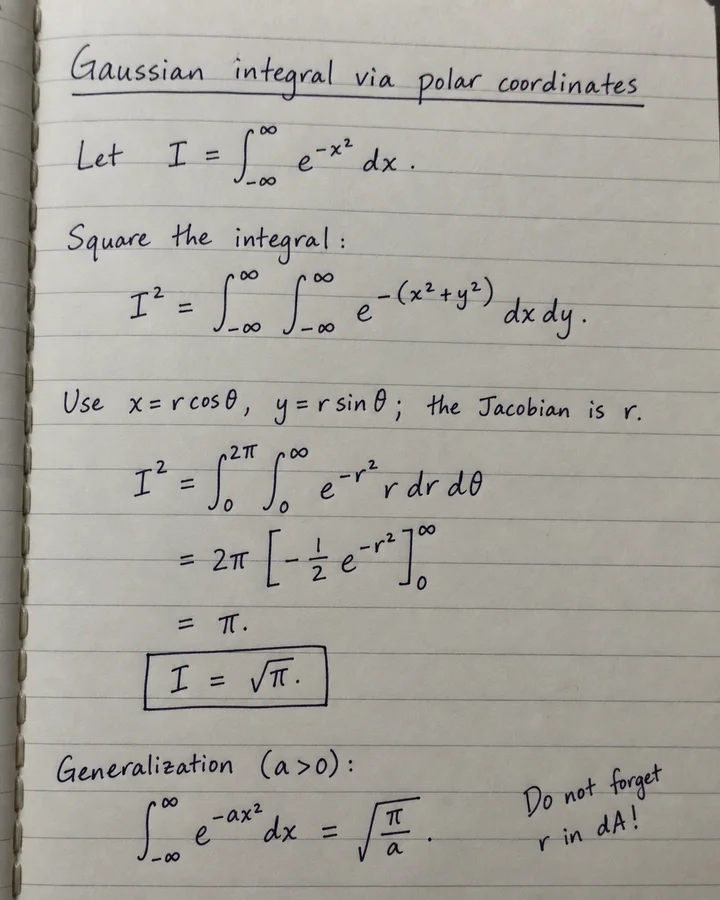 Gaussian integral via polar coordinates
Let I = ∫_{-∞}^{∞} e^{-x²} dx.
Square the integral:
I² = ∫_{-∞}^{∞} ∫_{-∞}^{∞} e^{-(x²+y²)} dx dy.
Use x = r cos θ, y = r sin θ; the Jacobian is r.
I² = ∫_{0}^{2π} ∫_{0}^{∞} e^{-r²} r dr dθ
= 2π [-½ e^{-r²}]_{0}^{∞}
= π.
I = √π.
Generalization (a>0):
∫_{-∞}^{∞} e^{-ax²} dx = √(π/a).
Do not forget
r in dA!